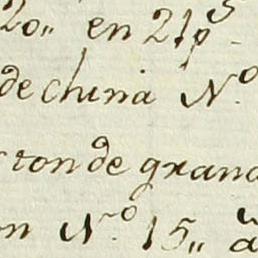 20,, en 21 p^s
de china N.^o
ron de grana
on N.^o 15,, a